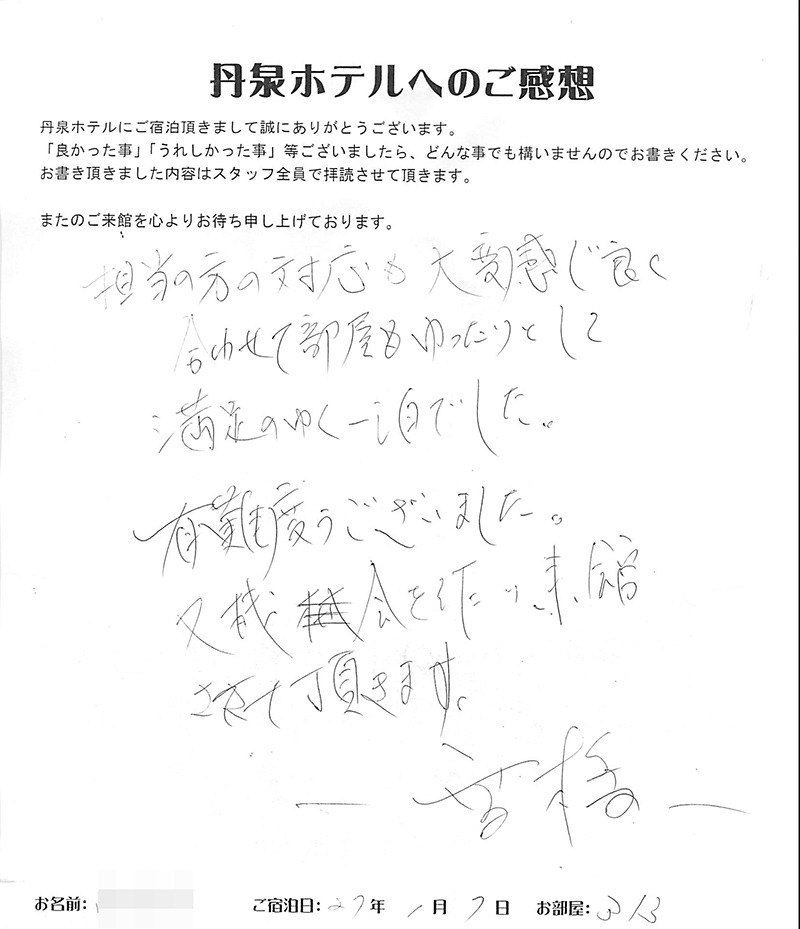 丹泉ホテルへのご感想
丹泉ホテルにご宿泊頂きまして誠にありがとうございます。
「良かった事」「うれしかった事」等ございましたら、どんな事でも構いませんのでお書きください。
お書き頂きました内容はスタッフ全員で拝読させて頂きます。
またのご来館を心よりお待ち申し上げております。
担当の方の対応も大変感じ良く
合わせて部屋もゆったりとして
満足のゆく一泊でした。
有難度うございました。
又機会を作たり来館
させて頂きます。
高橋
お名前: ご宿泊日: 27年 1月 7日 お部屋: 313